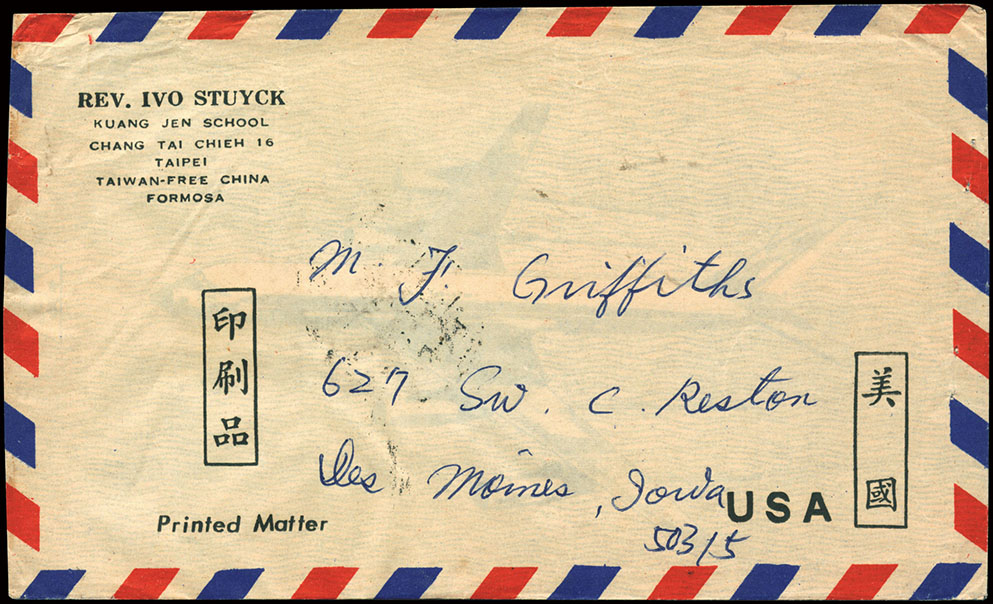 REV. IVO STUYCK
KUANG JEN SCHOOL
CHANG TAI CHIEH 16
TAIPEI
TAIWAN-FREE CHINA
FORMOSA
M F. Griffiths
627 SW. C. Reston
Des Moines, Iowa
50315
USA
印刷品
Printed Matter
美國